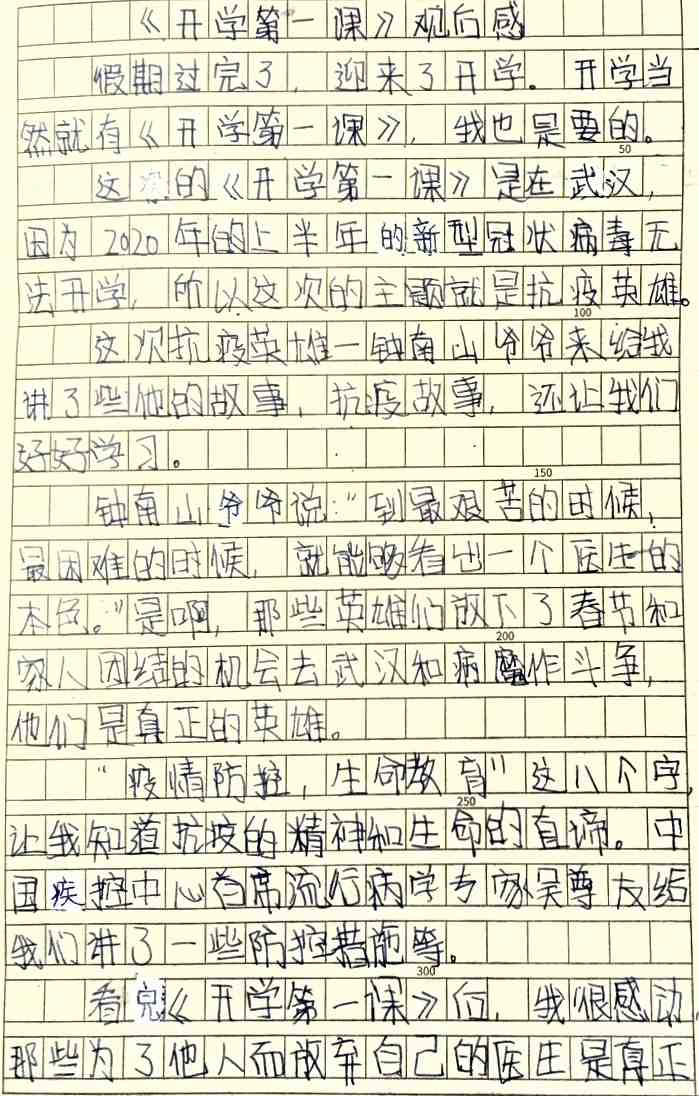 《开学第一课》观后感
假期过完了，迎来了开学。开学当
然就有《开学第一课》，我也是要的。
50
这次的《开学第一课》是在武汉，
因为2020年的上半年的新型冠状病毒无
法开学，所以这次的主题就是抗疫英雄。
100
这次抗疫英雄一钟南山爷爷来给我
讲了些他的故事，抗疫故事，还让我们
好好学习。
150
钟南山爷爷说："到最艰苦的时候，
最困难的时候，就能够看出一个医生的
本色。"是啊，那些英雄们放下了春节和
200
家人团结的机会去武汉和病魔作斗争，
他们是真正的英雄。
"疫情防控，生命教育"这八个字，
250
让我知道抗疫的精神和生命的真谛。中
国疾控中心首席流行病学专家吴尊友给
我们讲了一些防控措施等。
300
看完《开学第一课》后，我很感动，
那些为了他人而放弃自己的医生是真正